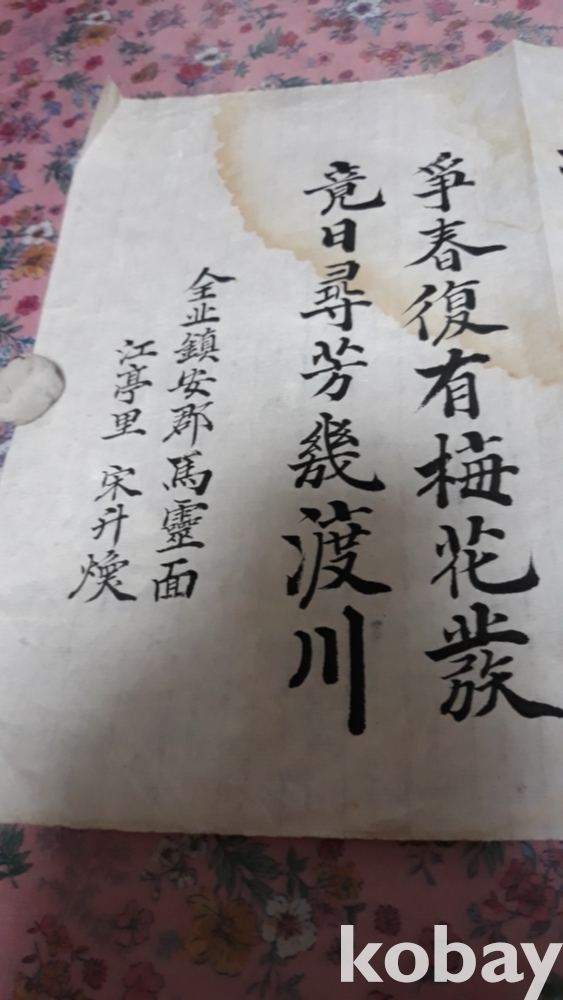 爭春復有梅花發
竟日尋芳幾渡川
仝北鎮安郡馬靈面
江亭里 宋升煥
kobay